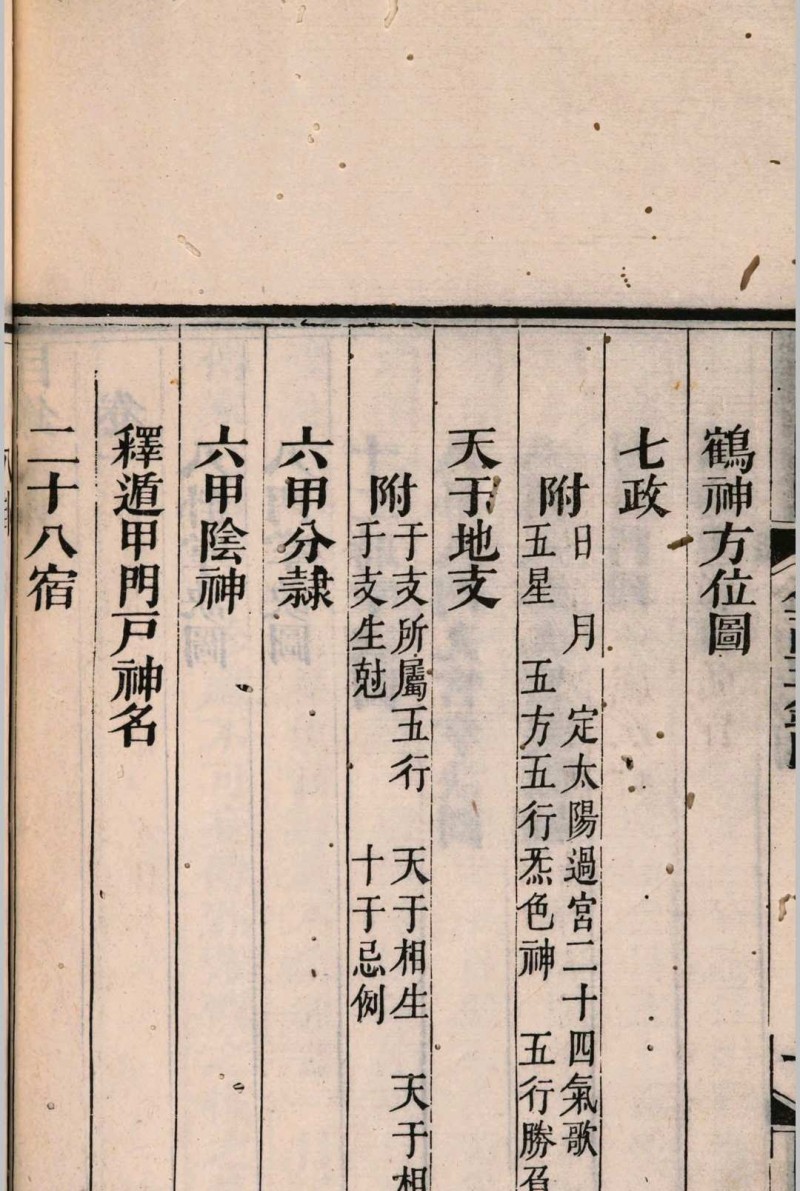 鶴神方位圖
七政
附
日 月 定太陽過宮二十四氣歌
五星 五方五行炁色神 五行勝負
天于地支
附
于支所屬五行 天于相生 天于相
于支生尅 十于忌例
六甲分隷
六甲陰神
釋遁甲門戸神名
二十八宿